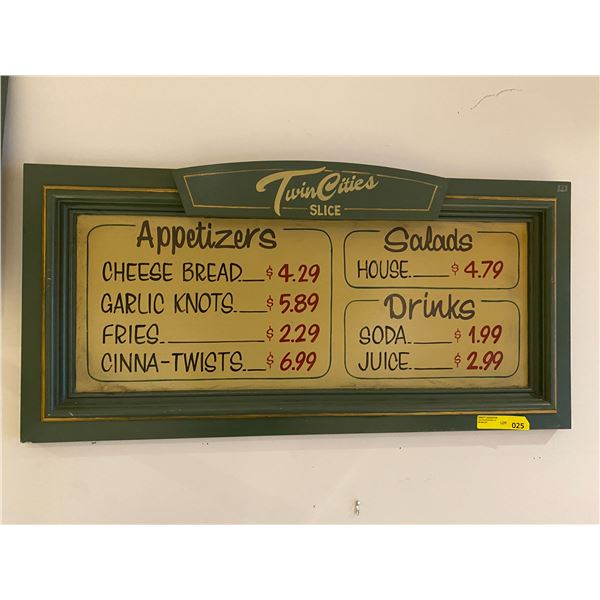 Twin Cities
SLICE
Appetizers
CHEESE BREAD $4.29
GARLIC KNOTS $5.89
FRIES $2.29
CINNA-TWISTS $6.99
Salads
HOUSE $4.79
Drinks
SODA $1.99
JUICE $2.99
LOT 025